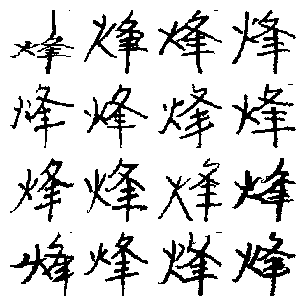 烽烽烽烽
烽烽烽烽
烽烽烽烽
烽烽烽烽